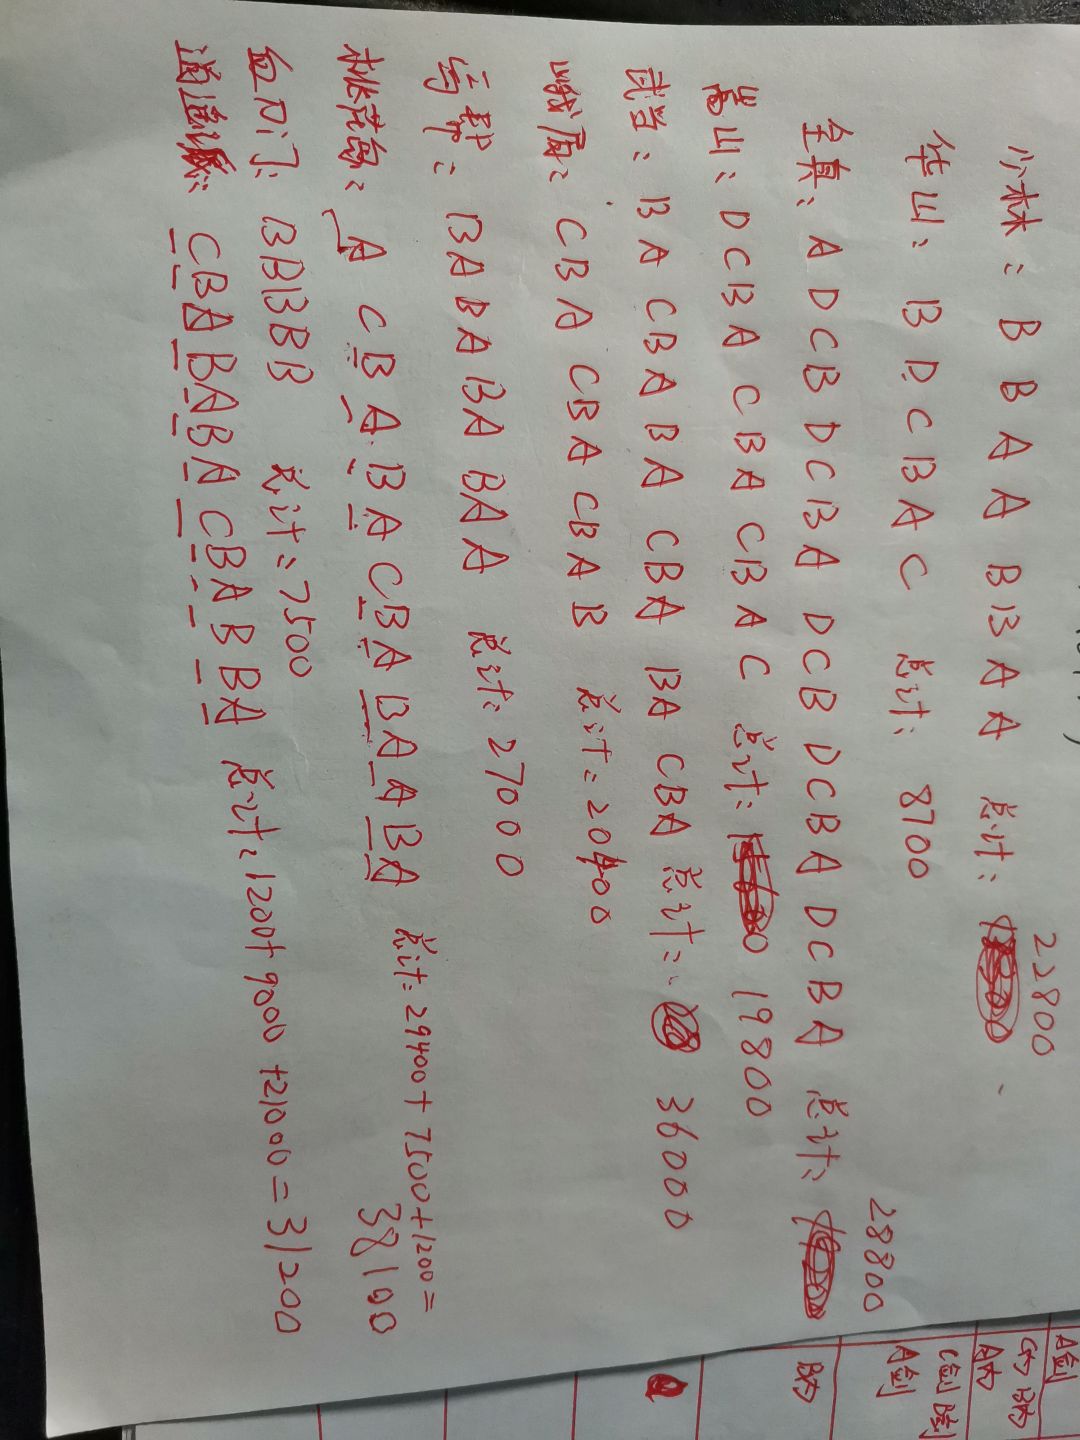 少林: B B A A B B A A 总计: 22800
华山: B D C B A C 总计: 8700
全真: A D C B D C B A D C B D C B A D C B A 总计: 28800
嵩山: D C B A C B A C B A C 总计: 19800
武当: B A C B A B A C B A B A C B A 总计: 36000
峨眉: C B A C B A C B A B 总计: 20400
丐帮: B A B A B A B A A 总计: 27000
桃花岛: A C B A B A C B A B A A B A 总计: 29400+7500+1200=
38100
血刀门: B B B B B 总计: 7500
逍遥派: C B A B A B A C B A B B A 总计: 1200+9000+21000=31200
A剑
A内
C剑
A剑
防